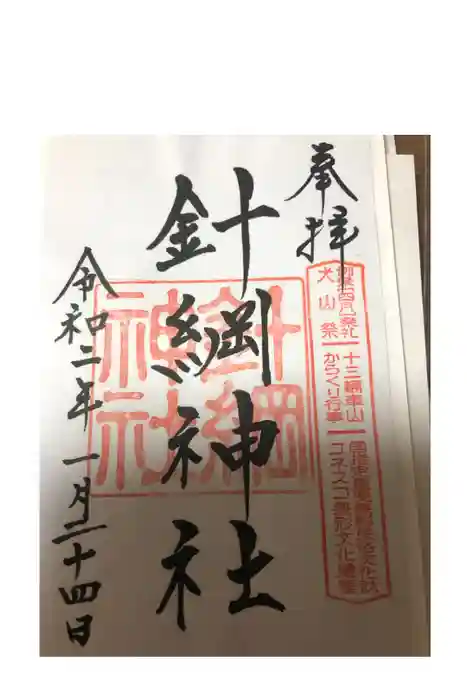 奉拝
例祭四月第一祭礼
犬山祭
十三輌車山
からくり行事
国指定重要無形民俗文化財
ユネスコ無形文化遺産
針綱神社
針綱
神社
令和二年一月二十四日